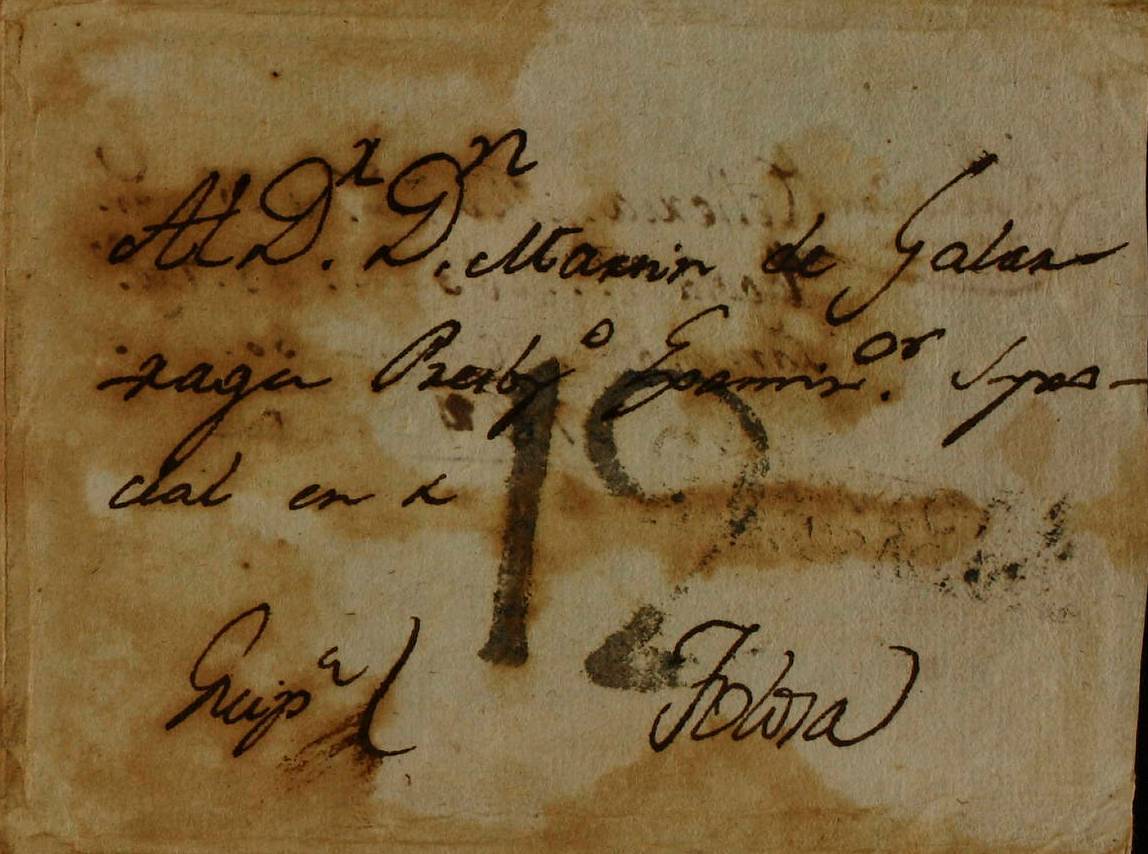 Al D.r D.n Martin de Galar-
raga Presb.o Examin.or Syno-
dal en
12
Guip.a ( Tolosa )